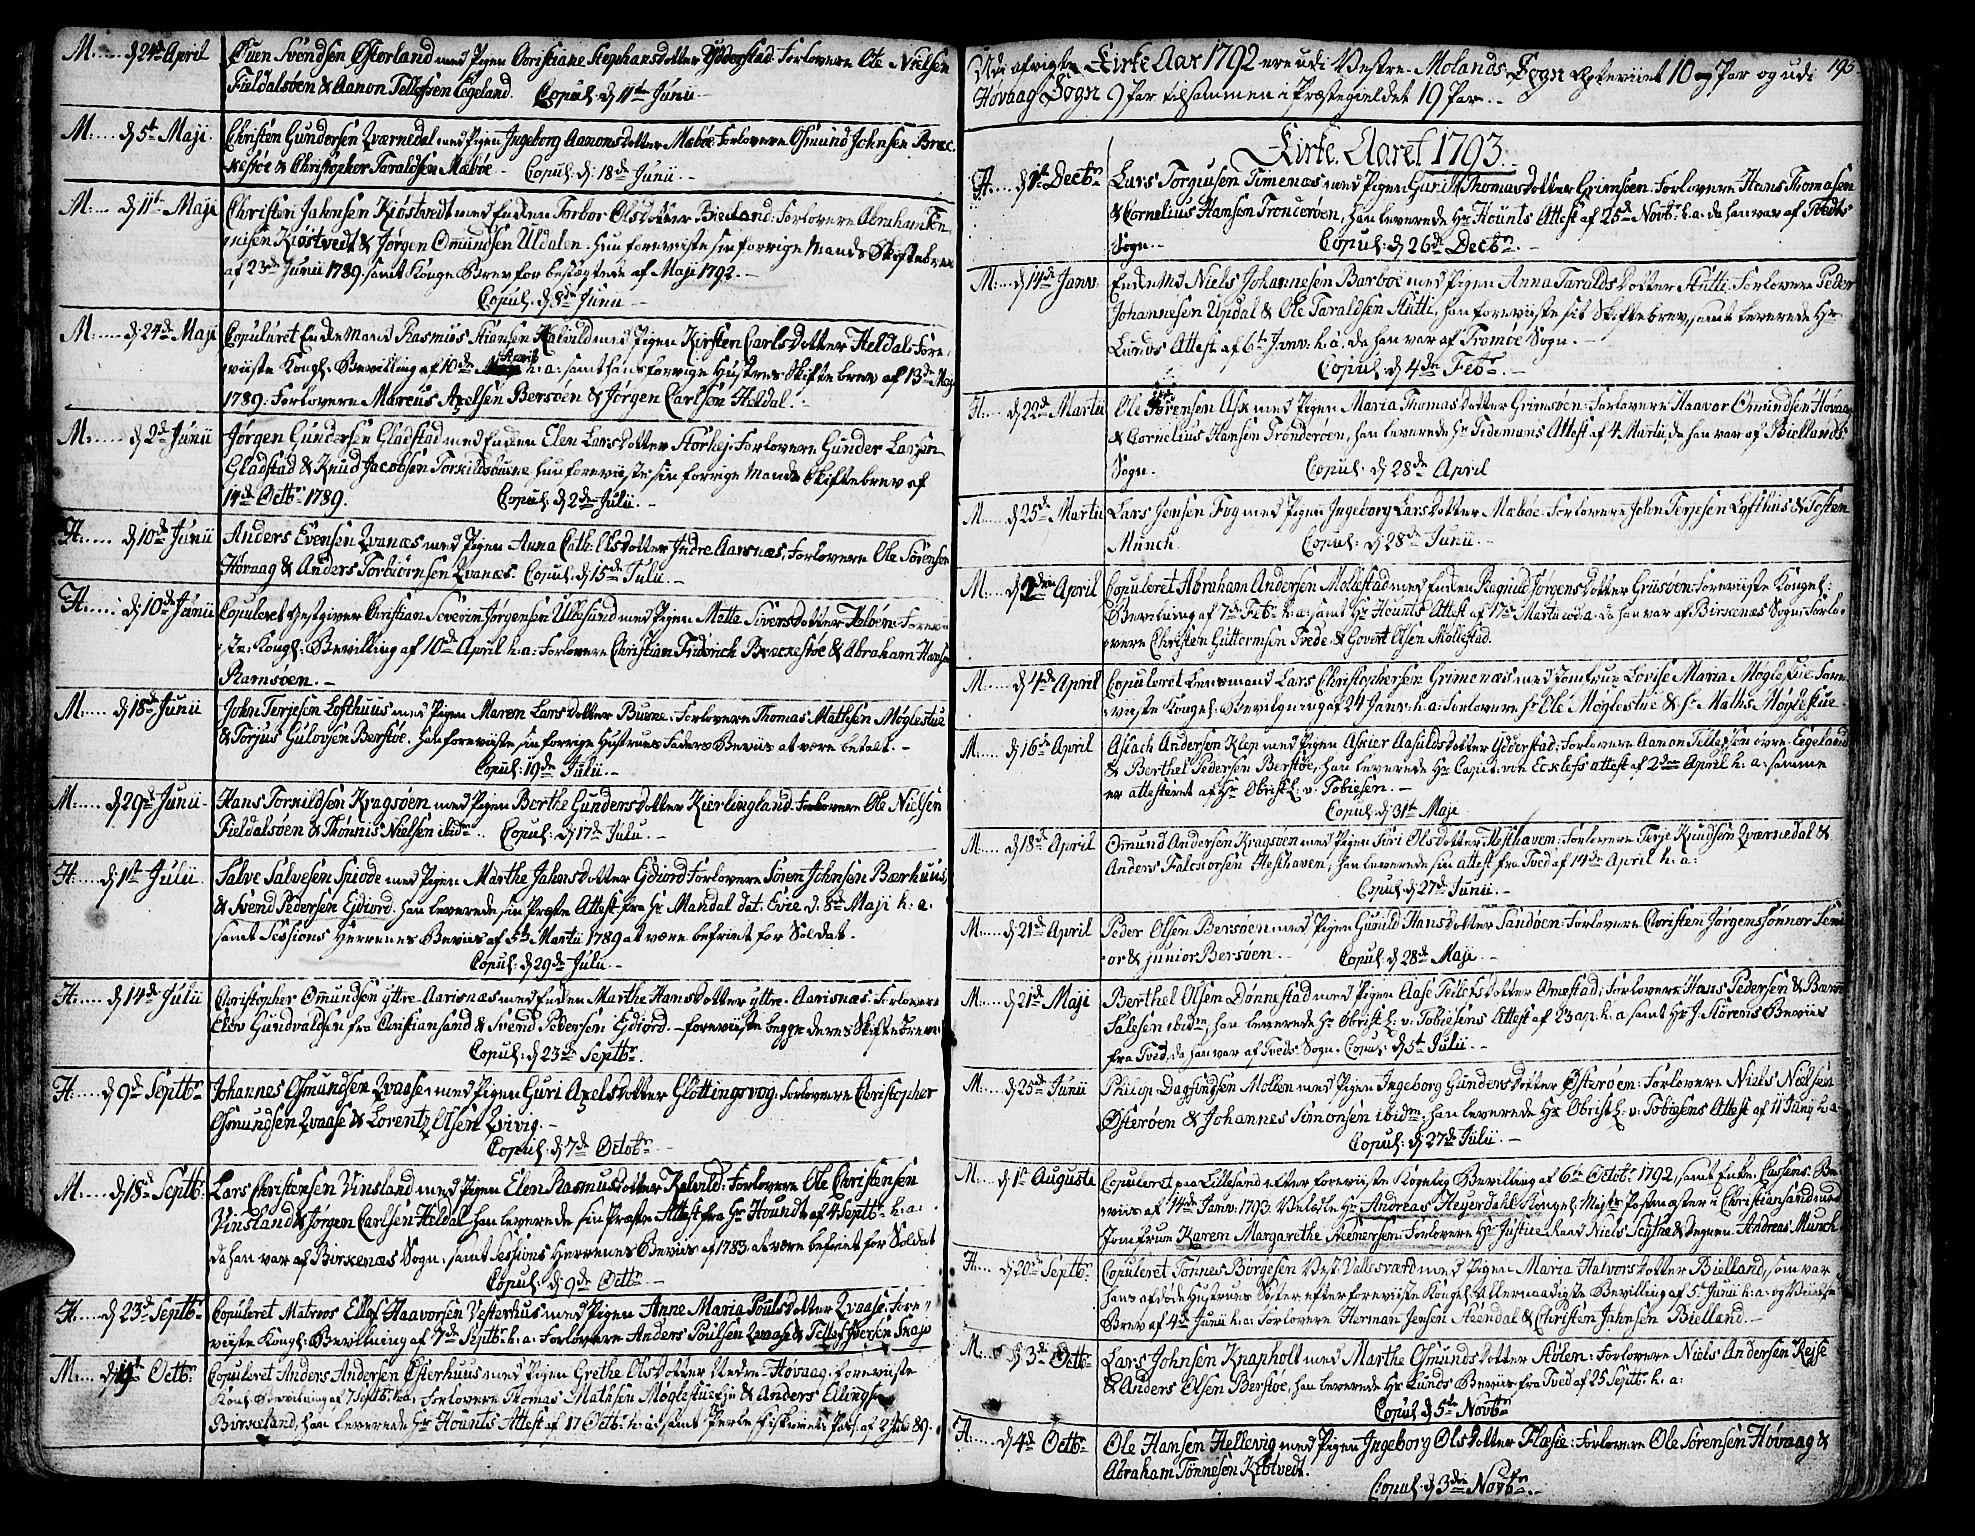 M..... d 24de April
Even Svendsen Østerland med Pigen Christiane Stephansdotter Ydderstad Forlovere Ole Nielsen
Fieldalsøen & Aanon Tellefsen Eegeland. Copul: d 11te Junii
M:..... d 5te Maji.
Christen Gundersen Qværnedal med Pigen Ingeborg Aanonsdotter Mæbøe Forlovere Osmund Johnsen Bræc-
kestøe & Christopher Taraldsen Mæbøe - Copul: d: 18de Junii. -
M:.... d 11te Maji
Christen Jahnsen Kiøstvedt med Enken Torbor Olsdotter Bieland: Forlovere Abraham Tøn-
nisen Kiøstvedt & Jørgen Omundsen Uldalen. Hun foreviiste sin forrige Mands Skiftebrev
af 23de Junii 1789, samt Konge Brev for beslægtede af Maji 1792. -
Copul. d 8de Junii -
M..... d: 24de Maji
Copuleret Enkemand Rasmus Stiansen Kalvild med Pigen Kirsten Carlsdotter Heldal Fore-
viiste Kongl: Bevilling af 10de April h: a: samt hans forrige Hustrues Skiftebrev af 13de Maj
1789: Forlovere Marcus Axelsen Bersøen & Jørgen Carlsen Heldal. -
M:..... d 2de Junii
Jørgen Gundersen Gladstad med Enken Elen Larsdotter Hørhej Forlovere Gunder Larsen
Gladstad & Knud Jacobsen Torkildsbuene hun foreviiste sin forrige Mands Skiftebrev af
14de Octbr 1789. Copul: d 2de Julii. -
H..... d 10de Junii
Anders Evensen Qvanæs med Pigen Anna Cath: Olsdotter Indre Aarsnæs, Forlovere Ole Sørensen
Høvaag & Anders Torbiørnsen Qvanæs. Copul: d 15de Julii. -
H:.... d 10de Junii
Copuleret Giestgiver Christian Severin Jørgensen Ulvesund med Pigen Mette Siversdotter Heløen: Forevi-
ste: Kongl: Bevilling af 10de April h: a: Forlovere Christian Fridrich Bræckestøe & Abraham Hansen
Ramsøen. -
M..... d 18de Junii
John Terjesen Lofthuus med Pigen Maren Larsdotter Buene: Forlovere Thomas Mathsen Møglestue
& Torjus Gulovsen Berstøe, han foreviiste sin forrige Hustrues Faders Beviis at være betalt. -
Copul: 19de Julii. -
M..... d 29de Junii -
Hans Torkildsen Kragsøen med Pigen Berthe Gundersdotter Kierlingland: Forlovere Ole Nielsen
Fieldalsøen & Thønnis Nielsen ibidm.. Copul: d 17de Julii. -
H..... d 1ste Julii.
Salve Salvesen Spiode med Pigen Marthe Jahnsdotter Eidiord Forlovere Søren Johnsen Bærhuus,
& Svend Pedersen Eidiord. han leverede sin Præste Attest fra Hr Mandal dat: Evie d. 8de Maji h. a.
samt Sessions Herrenes Beviis af 5te Martii 1789 at være befriet for Soldat. -
Copul: d 29de Julii. -
H:.... d 14de Julii
Christopher Omundsen yttre-Aarisnæs med Enken Marthe Hansdotter yttre-Aarisnæs: Forlovere
Elov Gundvaldsen fra Christiansand & Svend Pedersen Eidiord. - foreviiste begge deres Skiftebreve
Copul: d 23de Septbr.
H:.... d 9de Septbr
Johannes Osmundsen Qvaase med Pigen Guri Axelsdotter Gløttingsvog: Forlovere Christopher
Osmundsen Qvaase & Lorentz Olsen Qvivig. -
Copul: d 7de Octobr
M.... d 18de Septbr:
Lars Christensen Vinsland med Pigen Elen Rasmusdotter Kalvild: Forlovere Ole Christensen
Vinsland & Jørgen Carlsen Heldal han leverede sin Præste Attest fra Hr Houndt af 4 Septbr: h: a:
da han var af Birkenæs Sogn: samt Sessions Herrenes Beviis af 1783 at være befriet for Soldat
Copul: d 9de Octbr. -
H.... d 23de Septbr
Copuleret Matros Ellef Haavorsen Vesterhus med Pigen Anne Maria Poulsdotter Qvaase: Fore-
viiste Kongl: Bevillning af 7de Septbr: h: a: Forlovere Anders Poulsen Qvaase & Tellef Iversen Skaje
M..... d 9te Octbr:
Copuleret Anders Andersen Østerhuus med Pigen Grethe Olsdotter Nedre-Høvaag: Foreviiste
Kongl: Bevilning af 7 Septbr: h: a: Forlovere Thomas Mathsen Møglestue & Anders Ellingsen
Birkeland, han leverede Hr Hounts Attest af 17 Octbr: h: a: samt Perle Fiskeriets Pas: af 2 Feb: 89.
Udi afvigte Kirke Aar 1792 ere udi Vestre-Molands Sogn Copuleret 10 Par og udi 195
Høvaag Sogn 9 Par tilsammen i Præstegieldet 19 Par. -
Kirke-Aaret 1793.
H.... d 1ste Decbr
Lars Torgiusen Timenæs med Pigen Guriil Thomasdotter Grimsøen: Forlovere Hans Thomasen
& Cornelius Hansen Tronderøen, han leverede Hr Hounts Attest af 25de Novbr: h: a: da han var af Tveds
Sogn. - Copul: d 26de Decbr. -
M:.... d 14de Janv:
Enkemd Niels Johannesen Barboe med Pigen Anna Taraldsdotter Hutti: Forlovere Peder
Johannesen Updal & Ole Taraldsen Hutti, han foreviiste sit Skiftebrev, samt leverede Hr
Lunds Attest af 6te Janv: h: a. da han var af Tromøe Sogn. -
Copul: d 4de Febr. -
H:.... d 22de Martii
Ole Sørensen Ask med Pigen Maria Thomasdotter Grimsøen: Forlovere Haavor Omundsen Høvaag
& Cornelius Hansen Trønderøen, han leverede Hr Tidemans Attest af 4 Martii, da han var af Biellands
Sogn. Copul: d 28de April
M..... d 25de Martii
Lars Jensen Fog med Pigen Ingeborg Larsdotter Mæbøe: Forlovere John Terjesen Lofthus & Tosten
Munch. Copul: d 28de Junii. -
M.... d 2den April
Copuleret Abraham Andersen Mollestad med Enken Ragnild Jørgensdotter Grusøen: Foreviiste Kongel:
Bevilning af 7de Febr: h: a: samt Hr Hounts Attest af 17de Martii eod: a: da han var af Birkenæs Sogn: Forlo-
vere Christen Guttormsen Trede & Govert Olsen Mollestad.
M..... d 4de April
Copuleret Lensmand Lars Christophersen Grimenæs med Jomfrue Lovise Maria Møglestue Fore-
viiste Kongel: Bevilgning af 24 Janv: h: a: Forlovere Sr Ole Møglestue & Sr Maths Møglestue
M..... d 16de April
Aslach Andersen Klep med Pigen Askier Aasuldsdotter Ydderstad: Forlovere Aanon Tellefsen øvre-Eegeland
& Berthel Pedersen Berstøe, han leverede Hr Capit: von Ecklefs attest af 2den April h: a: samme
er attesteret af Hr Obristl: v: Tobiesen. -
Copul: d 31te Maje
M..... d 18de April
Omund Andersen Kragsøen med Pigen Siri Olsdotter Hesthaven: Forlovere Terje Knudsen Qværnedal &
Anders Falchvorsen Hesthaven, han leverede sin attest fra Tved af 14de April h: a:
Copul: d 27de Junii. -
M..... d 21de April
Peder Olsen Bersøen med Pigen Gunild Hansdotter Sandøen: Forlovere Christen Jørgenssønner Seni-
or & junior Bersøen. Copul: d 28de Maji. -
M..... d 21de Maji
Berthel Olsen Dønnestad med Pigen Aase Tellefsdotter Omestad; Forlovere Hans Pedersen &
Salesen ibidm, han leverede Hr Obristl: v: Tobiesens Attest af 23 ap: h: a samt Hr J. Størens Beviis
fra Tved, da han var af Tveds Sogn. Copul: d 5te Julii. -
M:.... d 25de Junii
Philip Dagfindsen Mollen med Pigen Ingeborg Gundersdotter Østerøen: Forlovere Niels Nielsen
Østerøen & Johannes Simonsen ibidm: han leverede Hr Obristl: v: Tobiesens Attest af 11 Junij h: a:
Copul: d 27de Julii. -
M..... d 1ste Auguste
Copuleret paa Lillesand efter foreviiste Kongelig Bevilling af 6te Octobr: 1792, samt Enke: Cassens Be-
viis af 14de Janv: 1793. Velædle Hr Andreas Heyerdahl Kongel: Majts Postmester i Christiansand med
Jomfrue Karen Margarethe Steenersen: Forlovere Hr Justice Raad Niels Scythe & Degnen Andreas Murch
H..... d 20de Septbr
Copuleret Tønnes Børgesen Vest: Vallesværd med Pigen Maria Halvorsdotter Bielland, som var
hans afdøde Hustrues Søster efter foreviiste Kongel: Allernaadigste Bevilling af 5te Junii h: a: og Skifte
Brev af 4de Junii h: a: Forlovere Herman Jensen Steendal & Christen Jahnsen Bielland. -
M..... d 3de Octbr
Lars Johnsen Knapholt med Marthe Osmundsdotter Stølen: Forlovere Niels Andersen Reise
& Anders Olsen Berstøe, han leverede Hr Lunds Beviis fra Tved af 25 Septbr: h: a:
Copul d 5te Novbr
H..... d 4de Octbr
Ole Hansen Hellevig med Pigen Ingeborg Olsdotter Flæsie: Forlovere Ole Sørensen Høvaag &
Abraham Tønnesen Kiøstvedt.
Copul: d 3die Novbr. -